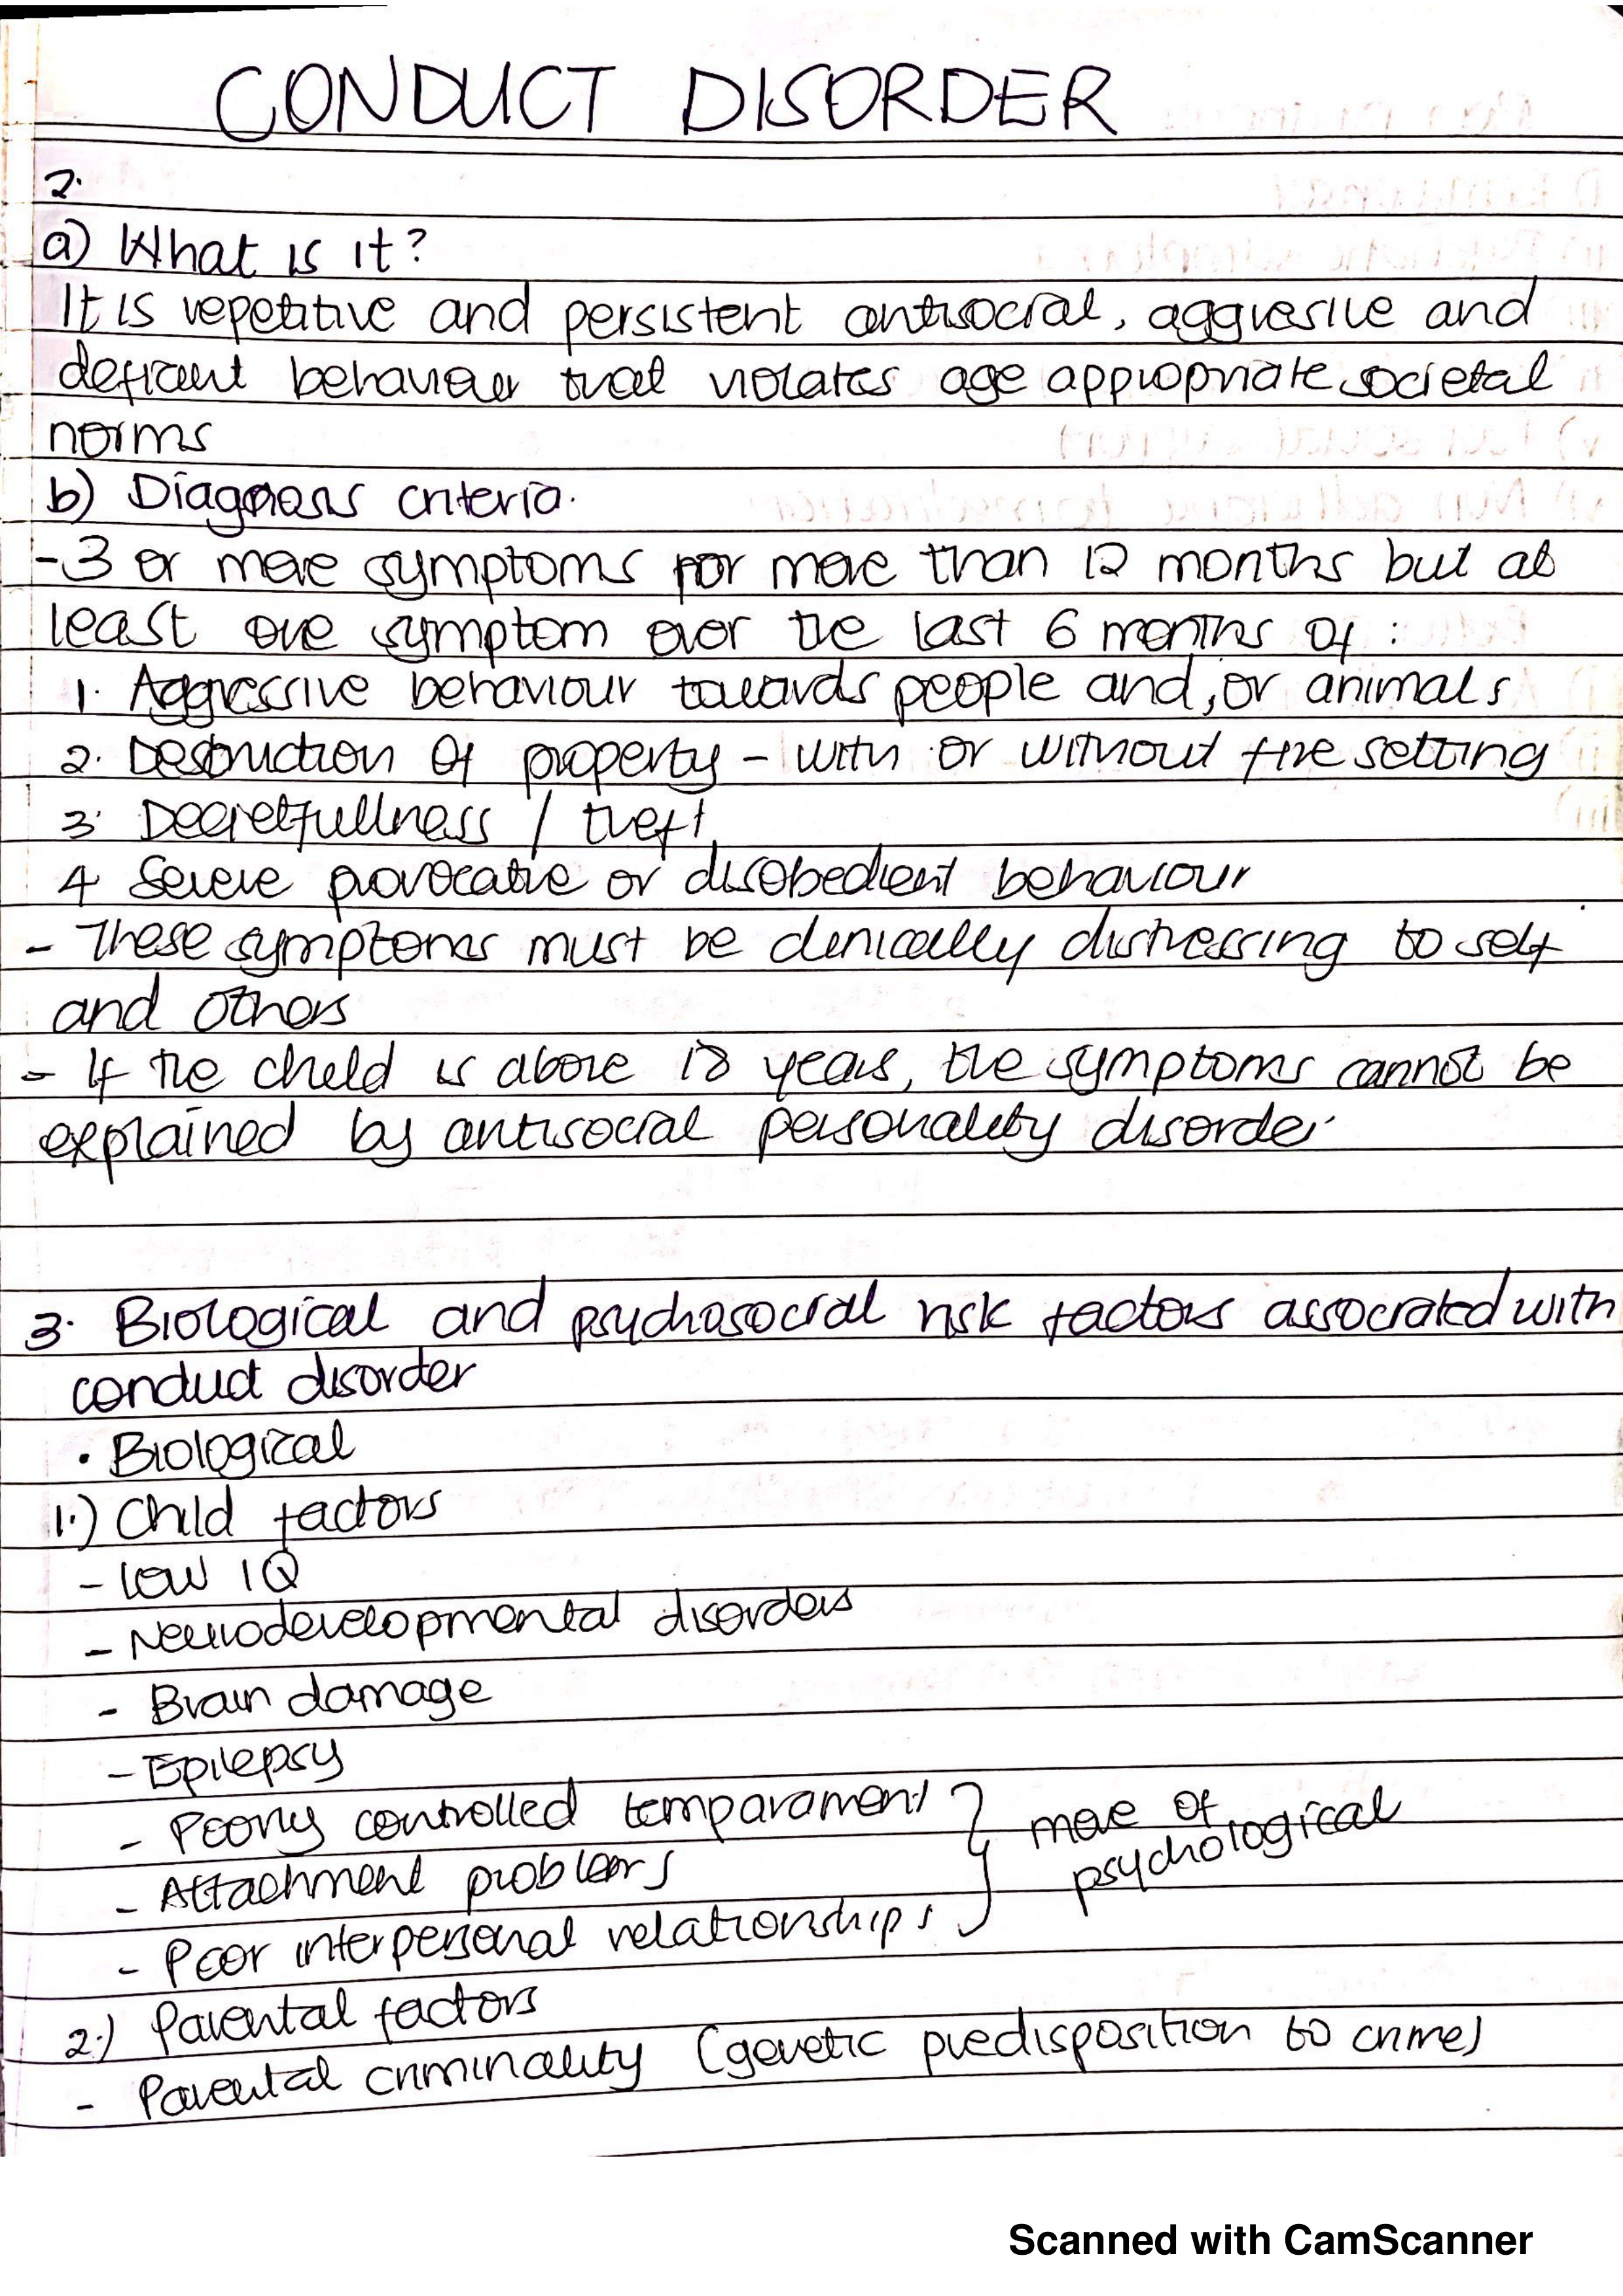 CONDUCT DISORDER
2.
a) What is it?
It is repetitive and persistent antisocial, aggresive and
defiant behaviour that violates age appropriate societal
norms
b) Diagnosis criteria.
- 3 or more symptoms for more than 12 months but at
least one symptom over the last 6 months of :
1. Aggressive behaviour towards people and/or animals
2. Destruction of property - with or without fire setting
3. Deceietfullness / theft
4 Severe provocative or disobedient behaviour
- These symptoms must be clinically distressing to self
and others
- If the child is above 18 years, the symptoms cannot be
explained by antisocial personality disorder.
3. Biological and psychosocial risk factors associated with
conduct disorder
• Biological
1.) Child factors
- Low IQ
- Neurodevelopmental disorders
- Brain damage
- Epilepsy
- Poorly controlled temparament
- Attachment problems
- Poor interpersonal relationships
more of
psychological
2.) Parental factors
- Parental criminality (genetic predisposition to crime)
Scanned with CamScanner